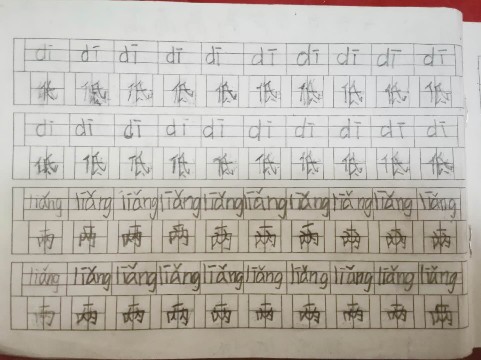 dī dī dī dī dī dī dī dī dī dī
低 低 低 低 低 低 低 低 低 低
dī dī dī dī dī dī dī dī dī dī
低 低 低 低 低 低 低 低 低 低
liǎng liǎng liǎng liǎng liǎng liǎng liǎng liǎng liǎng liǎng
两 两 两 两 两 两 两 两 两 两
liǎng liǎng liǎng liǎng liǎng liǎng liǎng liǎng liǎng liǎng
两 两 两 两 两 两 两 两 两 两